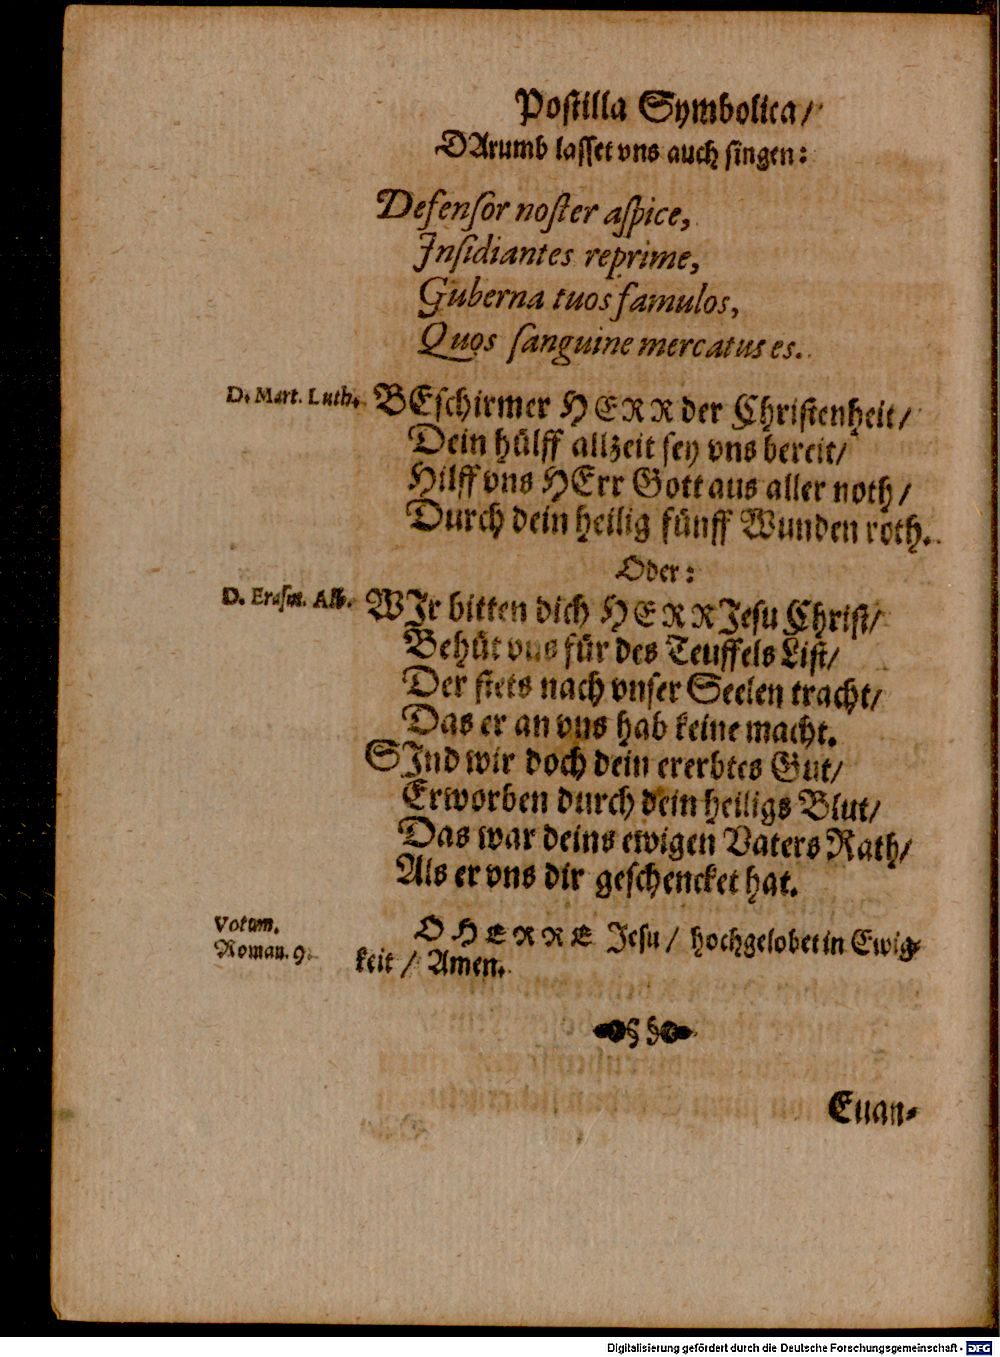 Postilla Symbolica/
DArumb lasset vns auch singen:
Defensor noster aspice,
Insidiantes reprime,
Guberna tuos famulos,
Quos sanguine mercatus es.
D. Mart. Luth. BEschirmer HERR der Christenheit/
Dein hülff allzeit sey vns bereit/
Hilff vns HErr Gott aus aller noth/
Durch dein heilig fünff Wunden roth.
Oder:
D. Erasm. Alb. WIr bitten dich HERR Jesu Christ/
Behüt vns für des Teuffels List/
Der stets nach vnser Seelen tracht/
Das er an vns hab keine macht.
SInd wir doch dein ererbtes Gut/
Erworben durch dein heiligs Blut/
Das war deins ewigen Vaters Rath/
Als er vns dir geschencket hat.
Votum. O HERRE Jesu/ hochgelobet in Ewig-
Roman. 9. keit/ Amen.
Euan-
Digitalisierung gefördert durch die Deutsche Forschungsgemeinschaft - DFG